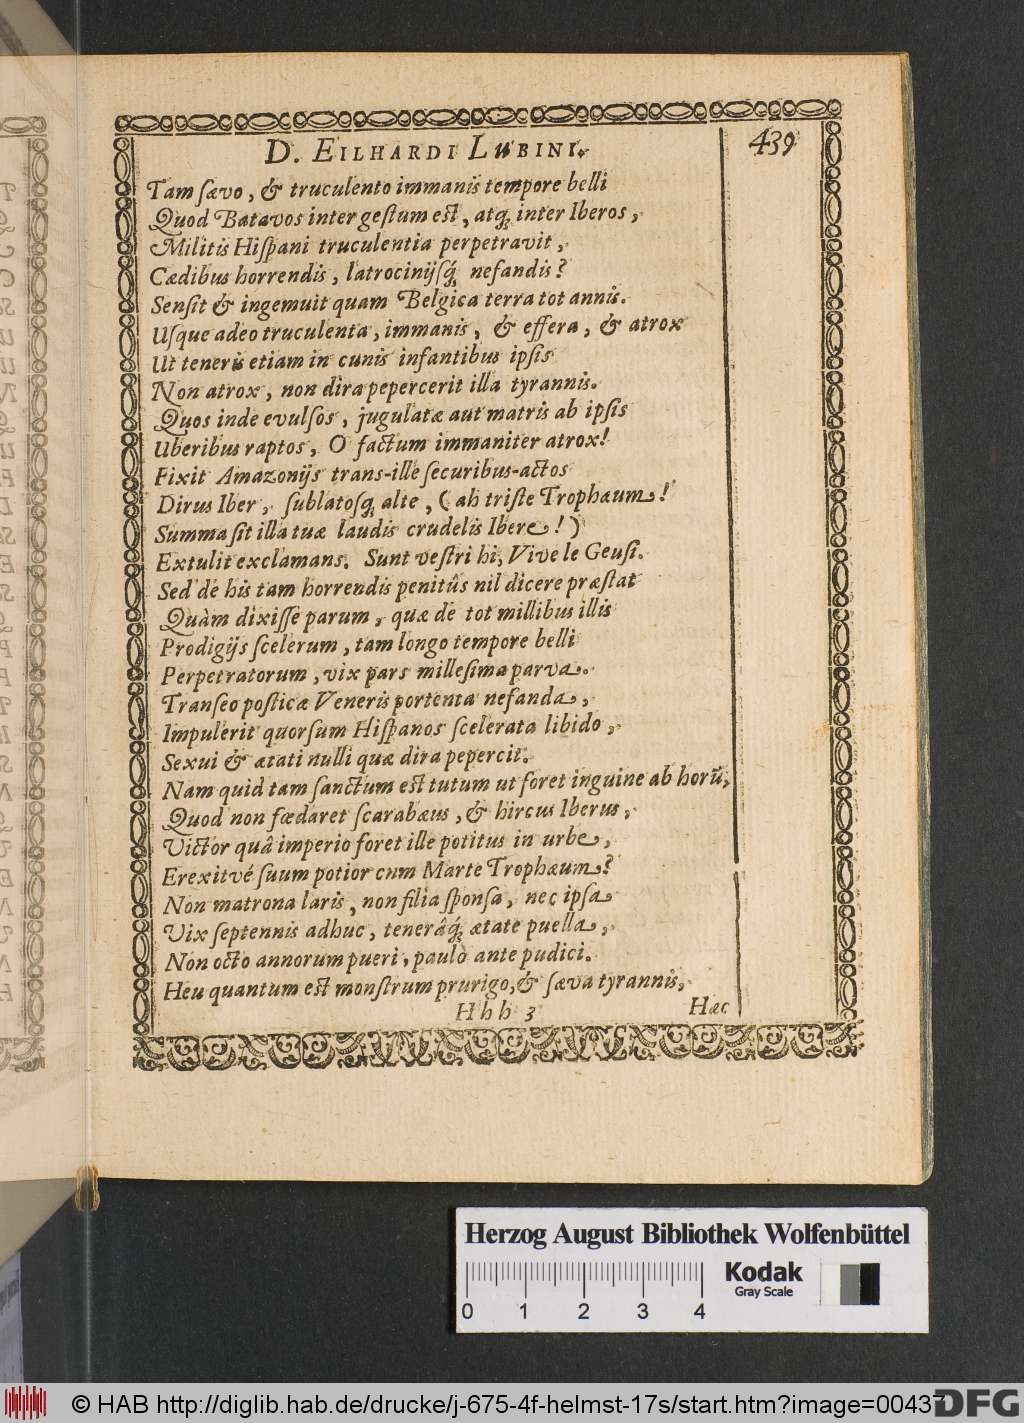 D. EILHARDI LUBINI. 439
Tam sævo, & truculento immanis tempore belli
Quod Batavos inter gestum est, atq́; inter Iberos,
Militis Hispani truculentia perpetravit,
Cædibus horrendis, latrocinijsq́; nefandis?
Sensit & ingemuit quam Belgica terra tot annis.
Usque adeo truculenta, immanis, & effera, & atrox
Ut teneris etiam in cunis infantibus ipsis
Non atrox, non dira pepercerit illa tyrannis.
Quos inde evulsos, jugulatæ aut matris ab ipsis
Uberibus raptos, O factum immaniter atrox!
Fixit Amazonijs trans-ille securibus-actos
Dirus Iber, sublatosq́; alte, (ah triste Trophæum!
Summa sit illa tuæ laudis crudelis Ibere!)
Extulit exclamans. Sunt vestri hi, Vive le Geusi.
Sed de his tam horrendis penitûs nil dicere præstat
Quàm dixisse parum, quæ de tot millibus illis
Prodigijs scelerum, tam longo tempore belli
Perpetratorum, vix pars millesima parva.
Transeo posticæ Veneris portenta nefanda,
Impulerit quorsum Hispanos scelerata libido,
Sexui & ætati nulli quæ dira pepercit.
Nam quid tam sanctum est tutum ut foret inguine ab horũ,
Quod non fœdaret scarabæus, & hircus Iberus,
Victor quâ imperio foret ille potitus in urbe,
Erexitvé suum potior cnm Marte Trophæum?
Non matrona laris, non filia sponsa, nec ipsa
Vix septennis adhuc, tenerâq́; ætate puella,
Non octo annorum pueri, paulò ante pudici.
Heu quantum est monstrum prurigo, & sæva tyrannis,
Hhh 3 Hæc
Herzog August Bibliothek Wolfenbüttel
Kodak
Gray Scale
0 1 2 3 4
© HAB http://diglib.hab.de/drucke/j-675-4f-helmst-17s/start.htm?image=00437
DFG